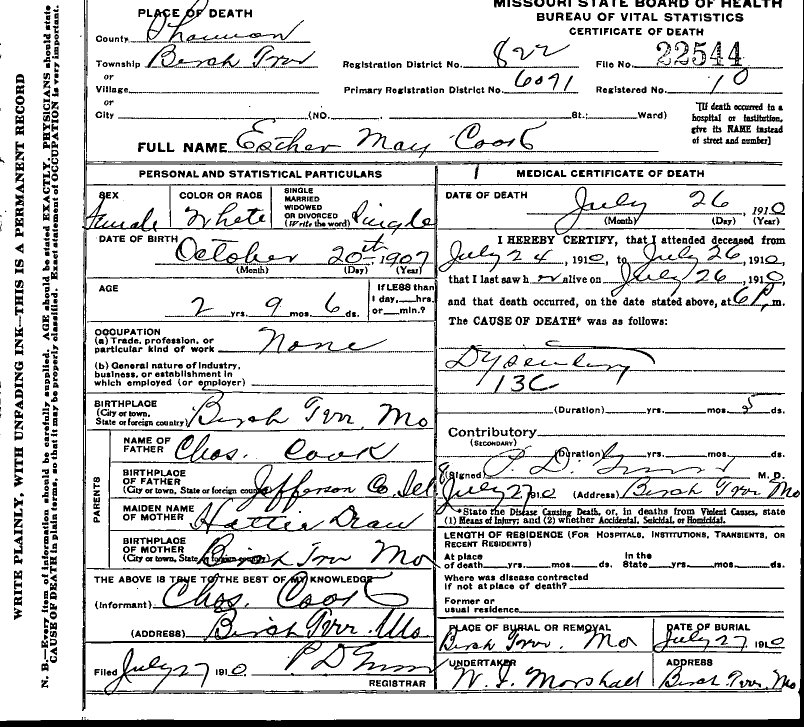 MISSOURI STATE BOARD OF HEALTH
BUREAU OF VITAL STATISTICS
CERTIFICATE OF DEATH
PLACE OF DEATH
County Shannon
Township Birch Tree
or
Village
or
City (NO. St.; Ward)
Registration District No. 822
File No. 22544
Primary Registration District No. 6091
Registered No. 10
[If death occurred in a
hospital or institution,
give its NAME instead
of street and number]
FULL NAME Esther May Cook
PERSONAL AND STATISTICAL PARTICULARS
SEX
Female
COLOR OR RACE
White
SINGLE
MARRIED
WIDOWED
OR DIVORCED
(Write the word) Single
DATE OF BIRTH
October 20th 1907
(Month) (Day) (Year)
AGE
2 yrs. 9 mos. 6 ds.
If LESS than
1 day, hrs.
or min.?
OCCUPATION
(a) Trade, profession, or
particular kind of work None
(b) General nature of industry,
business, or establishment in
which employed (or employer)
BIRTHPLACE
(City or town,
State or foreign country) Birch Tree Mo
PARENTS
NAME OF
FATHER Chas. Cook
BIRTHPLACE
OF FATHER
(City or town, State or foreign country) Jefferson Co. Ill
MAIDEN NAME
OF MOTHER Hattie
BIRTHPLACE
OF MOTHER
(City or town, State or foreign country) Birch Tree Mo
THE ABOVE IS TRUE TO THE BEST OF MY KNOWLEDGE
(Informant) Chas. Cook
(ADDRESS) Birch Tree Mo.
Filed July 27 1910 P D
REGISTRAR
MEDICAL CERTIFICATE OF DEATH
DATE OF DEATH
July 26 1910
(Month) (Day) (Year)
I HEREBY CERTIFY, that I attended deceased from
July 24, 1910, to July 26, 1910,
that I last saw h er alive on July 26, 1910,
and that death occurred, on the date stated above, at 6 P. m.
The CAUSE OF DEATH* was as follows:
Dysentery
13C
(Duration) yrs. mos. 5 ds.
Contributory
(SECONDARY)
(Duration) yrs. mos. ds.
(Signed) P. D. M. D.
July 27 1910 (Address) Birch Tree Mo
*State the Disease Causing Death, or, in deaths from Violent Causes, state
(1) Means of Injury; and (2) whether Accidental, Suicidal, or Homicidal.
LENGTH OF RESIDENCE (FOR HOSPITALS, INSTITUTIONS, TRANSIENTS, OR
RECENT RESIDENTS)
At place
of death yrs. mos. ds.
In the
State yrs. mos. ds.
Where was disease contracted
if not at place of death?
Former or
usual residence
PLACE OF BURIAL OR REMOVAL
Birch Tree Mo
DATE OF BURIAL
July 27 1910
UNDERTAKER
W. J. Marshall
ADDRESS
Birch Tree Mo
WRITE PLAINLY, WITH UNFADING INK—THIS IS A PERMANENT RECORD
N. B.—Every item of information should be carefully supplied. AGE should be stated EXACTLY. PHYSICIANS should state
CAUSE OF DEATH in plain terms, so that it may be properly classified. Exact statement of OCCUPATION is very important.